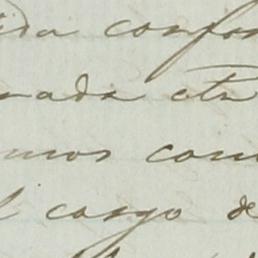 ida confor
nada otr
mos com
l cargo de